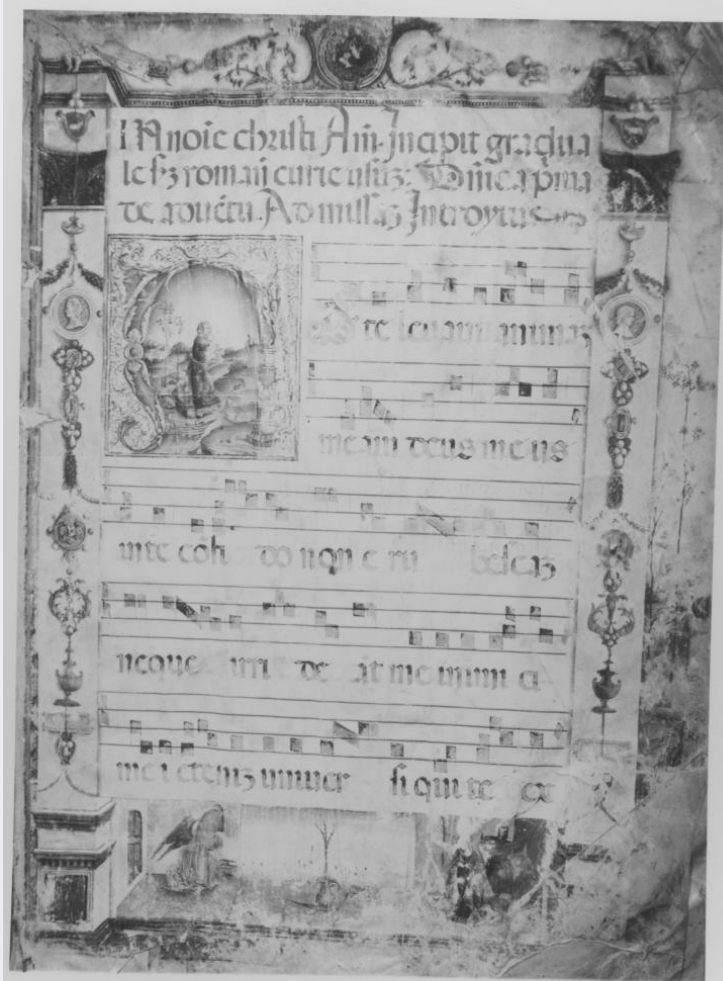 IN noie christi Am. Incipit gradua
le sz romaii curie usuz. Dnica pma
de aduētu. Ad missaz Introytus
te levavi animaz
meam deus meus
in te cōfi do non e ru bescaz
neque irri de at me inimi ci
mei etenīz univer si qui te ex